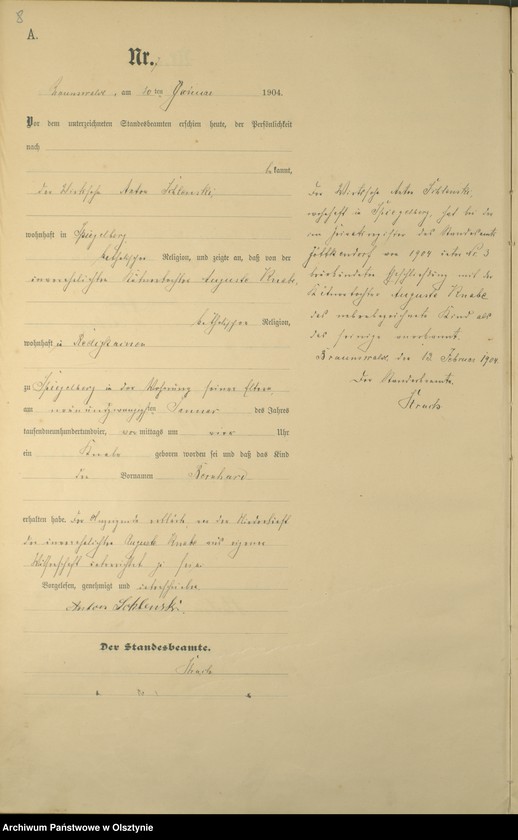 8
A.
Nr.
Braunswalde, am 30 ten Januar 1904.
Vor dem unterzeichneten Standesbeamten erschien heute, der Persönlichkeit
nach
bekannt,
der Wirthssohn Anton Schlenski,
wohnhaft in Spiegelberg
katholischer Religion, und zeigte an, daß von der
unverehelichten Käthnertochter Auguste Knabe,
katholischer Religion,
wohnhaft in
zu Spiegelberg in der Wohnung seiner Eltern
am neunundzwanzigsten Januar des Jahres
tausendneunhundertundvier, vormittags um vier Uhr
ein Knabe geboren worden sei und daß das Kind
den Vornamen Bernhard
erhalten habe. Der Anzeigende erklärte, von der Niederkunft
der unverehelichten Auguste Knabe aus eigener
Wissenschaft unterrichtet zu sein.
Vorgelesen, genehmigt und unterschrieben
Anton Schlenski.
Der Standesbeamte.
Der Wirthssohn Anton Schlenski,
wohnhaft in Spiegelberg, hat bei der
im Heiratsregister des Standesamts
von 1904 unter No 3
beurkundeten Eheschließung mit der
Käthnertochter Auguste Knabe
das nebenbezeichnete Kind als
das seinige anerkannt.
Braunswalde, den 12. Februar 1904.
Der Standesbeamte.
Archiwum Państwowe w Olsztynie